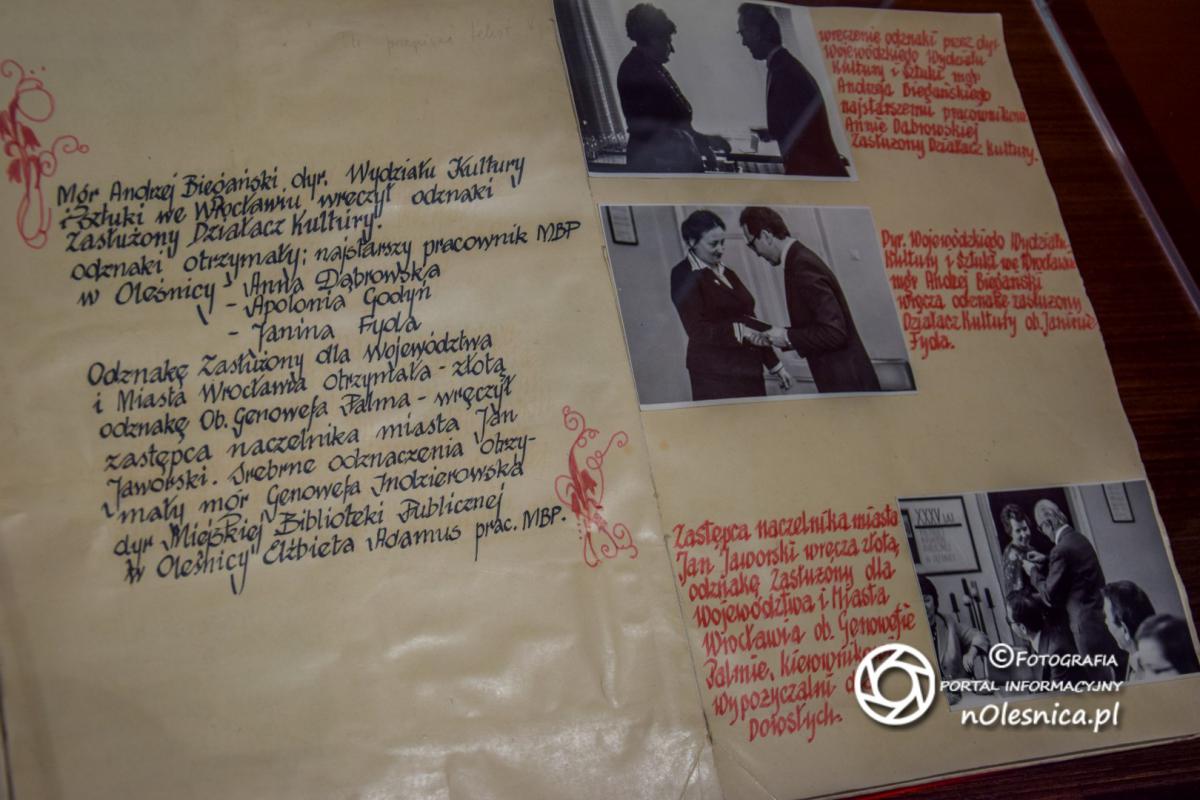 Mgr Andrzej Biegański, dyr. Wydziału Kultury
i Sztuki we Wrocławiu wręczył odznaki
Zasłużony Działacz Kultury.
odznaki otrzymały: najstarszy pracownik MBP
w Oleśnicy - Anna Dąbrowska
- Apolonia Godyń
- Janina Fyda
Odznakę Zasłużony dla Województwa
i Miasta Wrocławia otrzymała - złotą
odznakę Ob. Genowefa Palma - wręczył
zastępca naczelnika miasta Jan
Jaworski. Srebrne odznaczenia otrzy-
mały mgr Genowefa Indzierowska
dyr Miejskiej Biblioteki Publicznej
w Oleśnicy Elżbieta Adamus prac. MBP.
wręczenie odznaki przez dyr.
Wojewódzkiego Wydziału
Kultury i Sztuki mgr
Andrzeja Biegańskiego
najstarszemu pracownikowi
Annie Dąbrowskiej
Zasłużony Działacz Kultury.
Dyr. Wojewódzkiego Wydziału
Kultury i Sztuki we Wrocławiu
mgr Andrzej Biegański
wręcza odznakę zasłużony
Działacz Kultury ob. Janinie
Fyda.
Zastępca naczelnika miasta
Jan Jaworski wręcza złotą
odznakę Zasłużony dla
Województwa i Miasta
Wrocławia ob. Genowefie
Palmie, kierownikowi
Wypożyczalni dla
Dorosłych.
XXXV LAT
©FOTOGRAFIA
PORTAL INFORMACYJNY
nOlesnica.pl